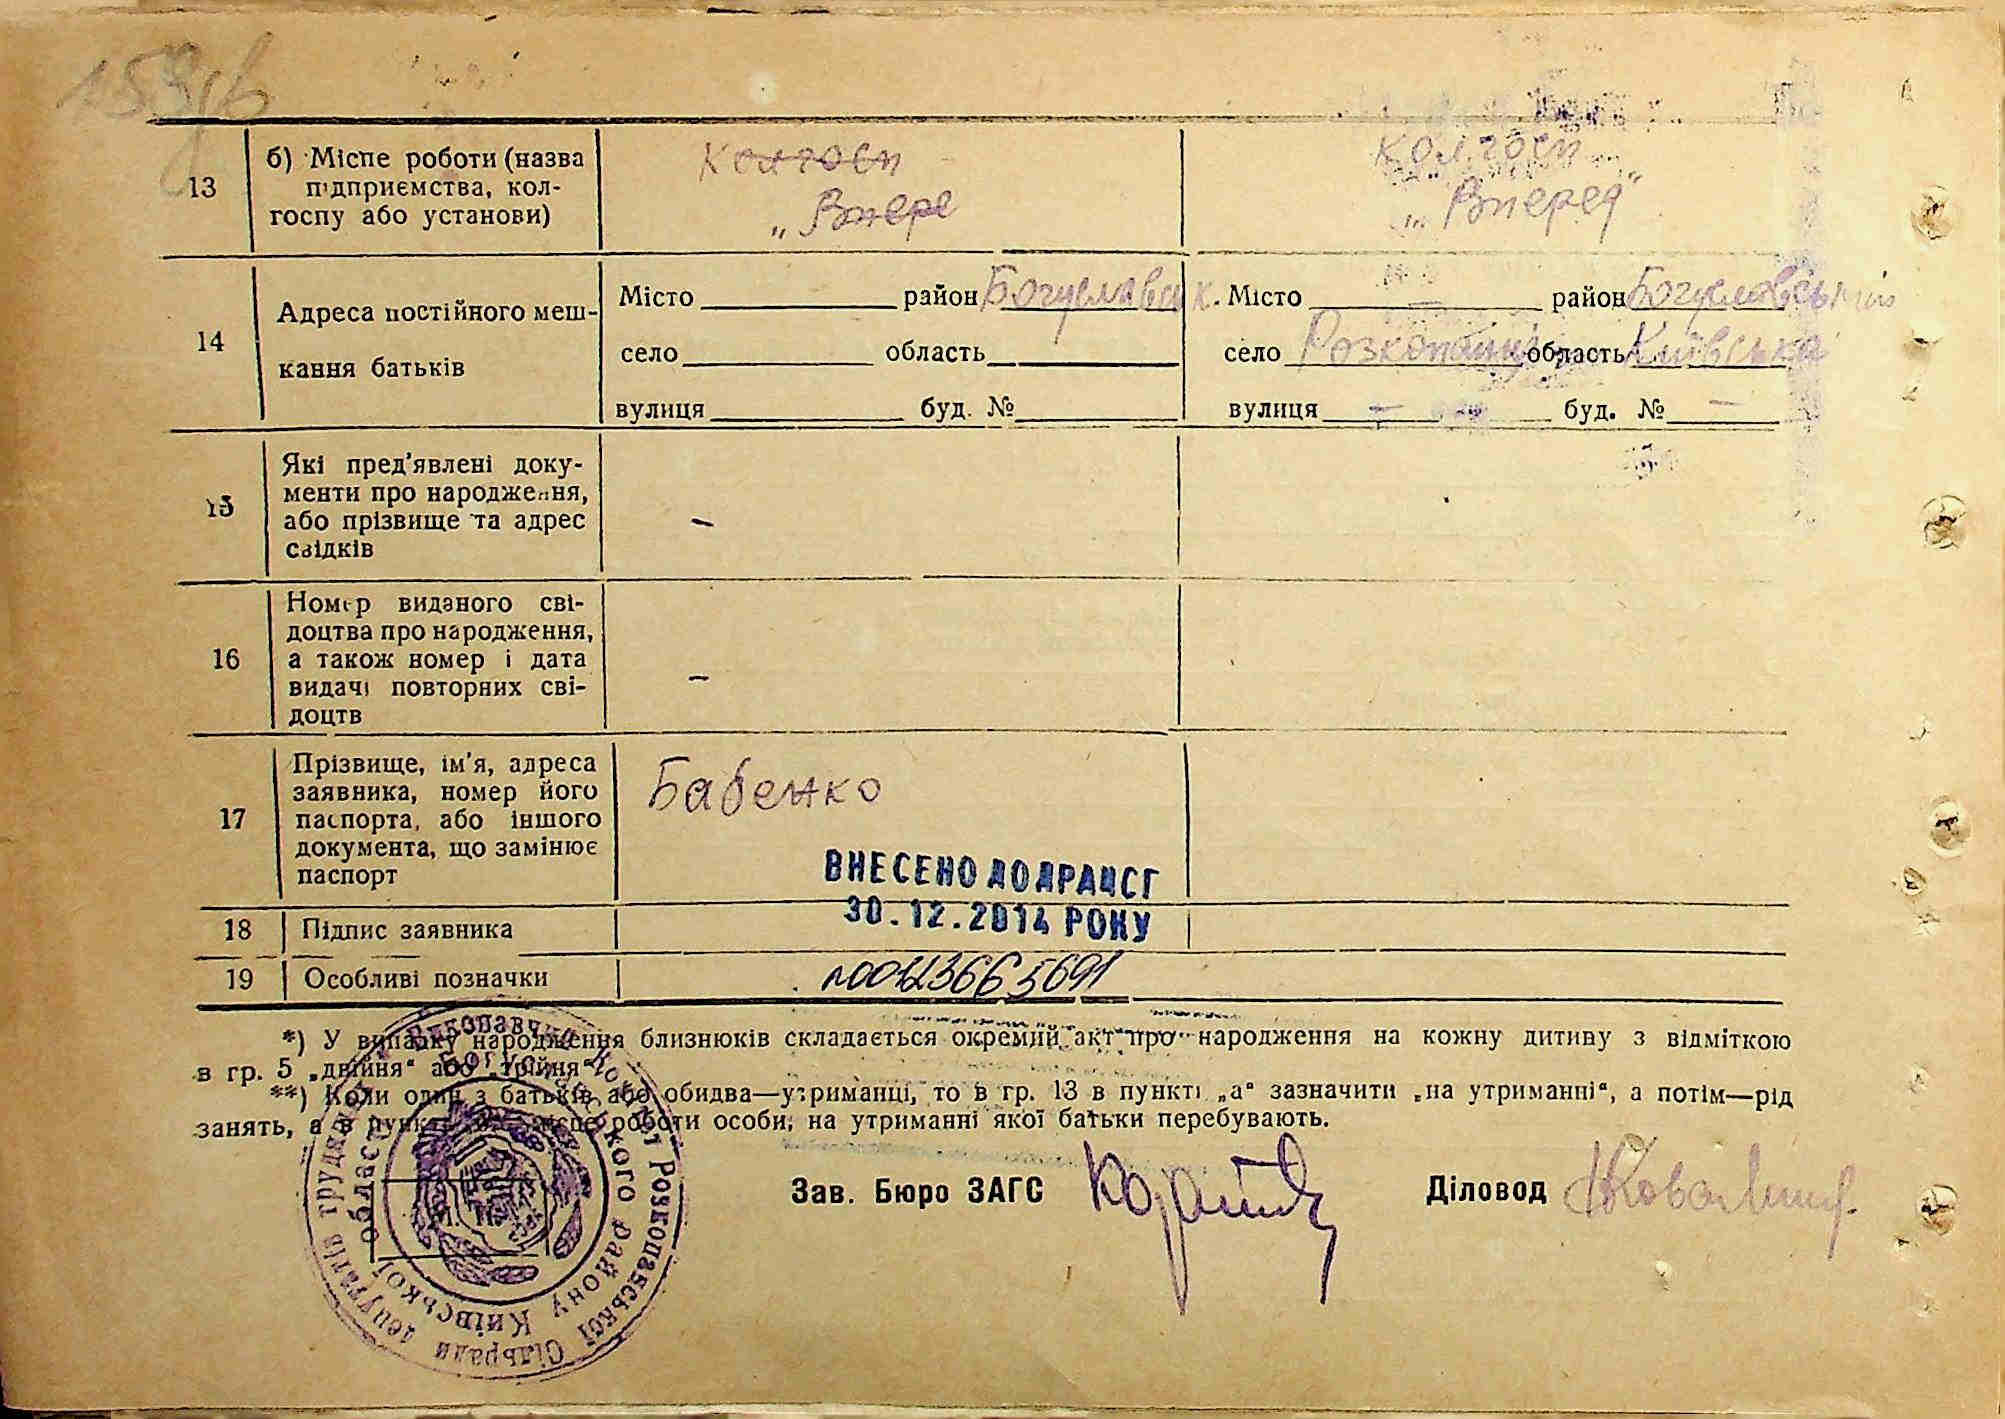 159/б
13
б) Місце роботи (назва
підприємства, кол-
госпу або установи)
Колгосп
„Впере
Колгосп
„Вперед“
14
Адреса постійного меш-
кання батьків
Місто район Богуславськ.
село область
вулиця буд. №
Місто — район Богуславський
село Розкопанці область Київська
вулиця — буд. № —
15
Які пред'явлені доку-
менти про народження,
або прізвище та адрес
свідків
–
16
Номер виданого сві-
доцтва про народження,
а також номер і дата
видачі повторних сві-
доцтв
–
17
Прізвище, ім'я, адреса
заявника, номер його
паспорта, або іншого
документа, що замінює
паспорт
Бабенко
ВНЕСЕНО ДО ДРАЦСГ
30.12.2014 РОКУ
18
Підпис заявника
19
Особливі позначки
*) У випадку народження близнюків складається окремий акт про народження на кожну дитину з відміткою
в гр. 5 „двійня“ або „трійня“.
**) Коли один з батьків або обидва—утриманці, то в гр. 13 в пункті „а“ зазначити „на утриманні“, а потім—рід
занять, а в пункті місце роботи особи, на утриманні якої батьки перебувають.
Зав. Бюро ЗАГС
Діловод
Виконавчий Комітет Розкопанської Сільради депутатів трудящих
Богуславського району Київської області
М. П.